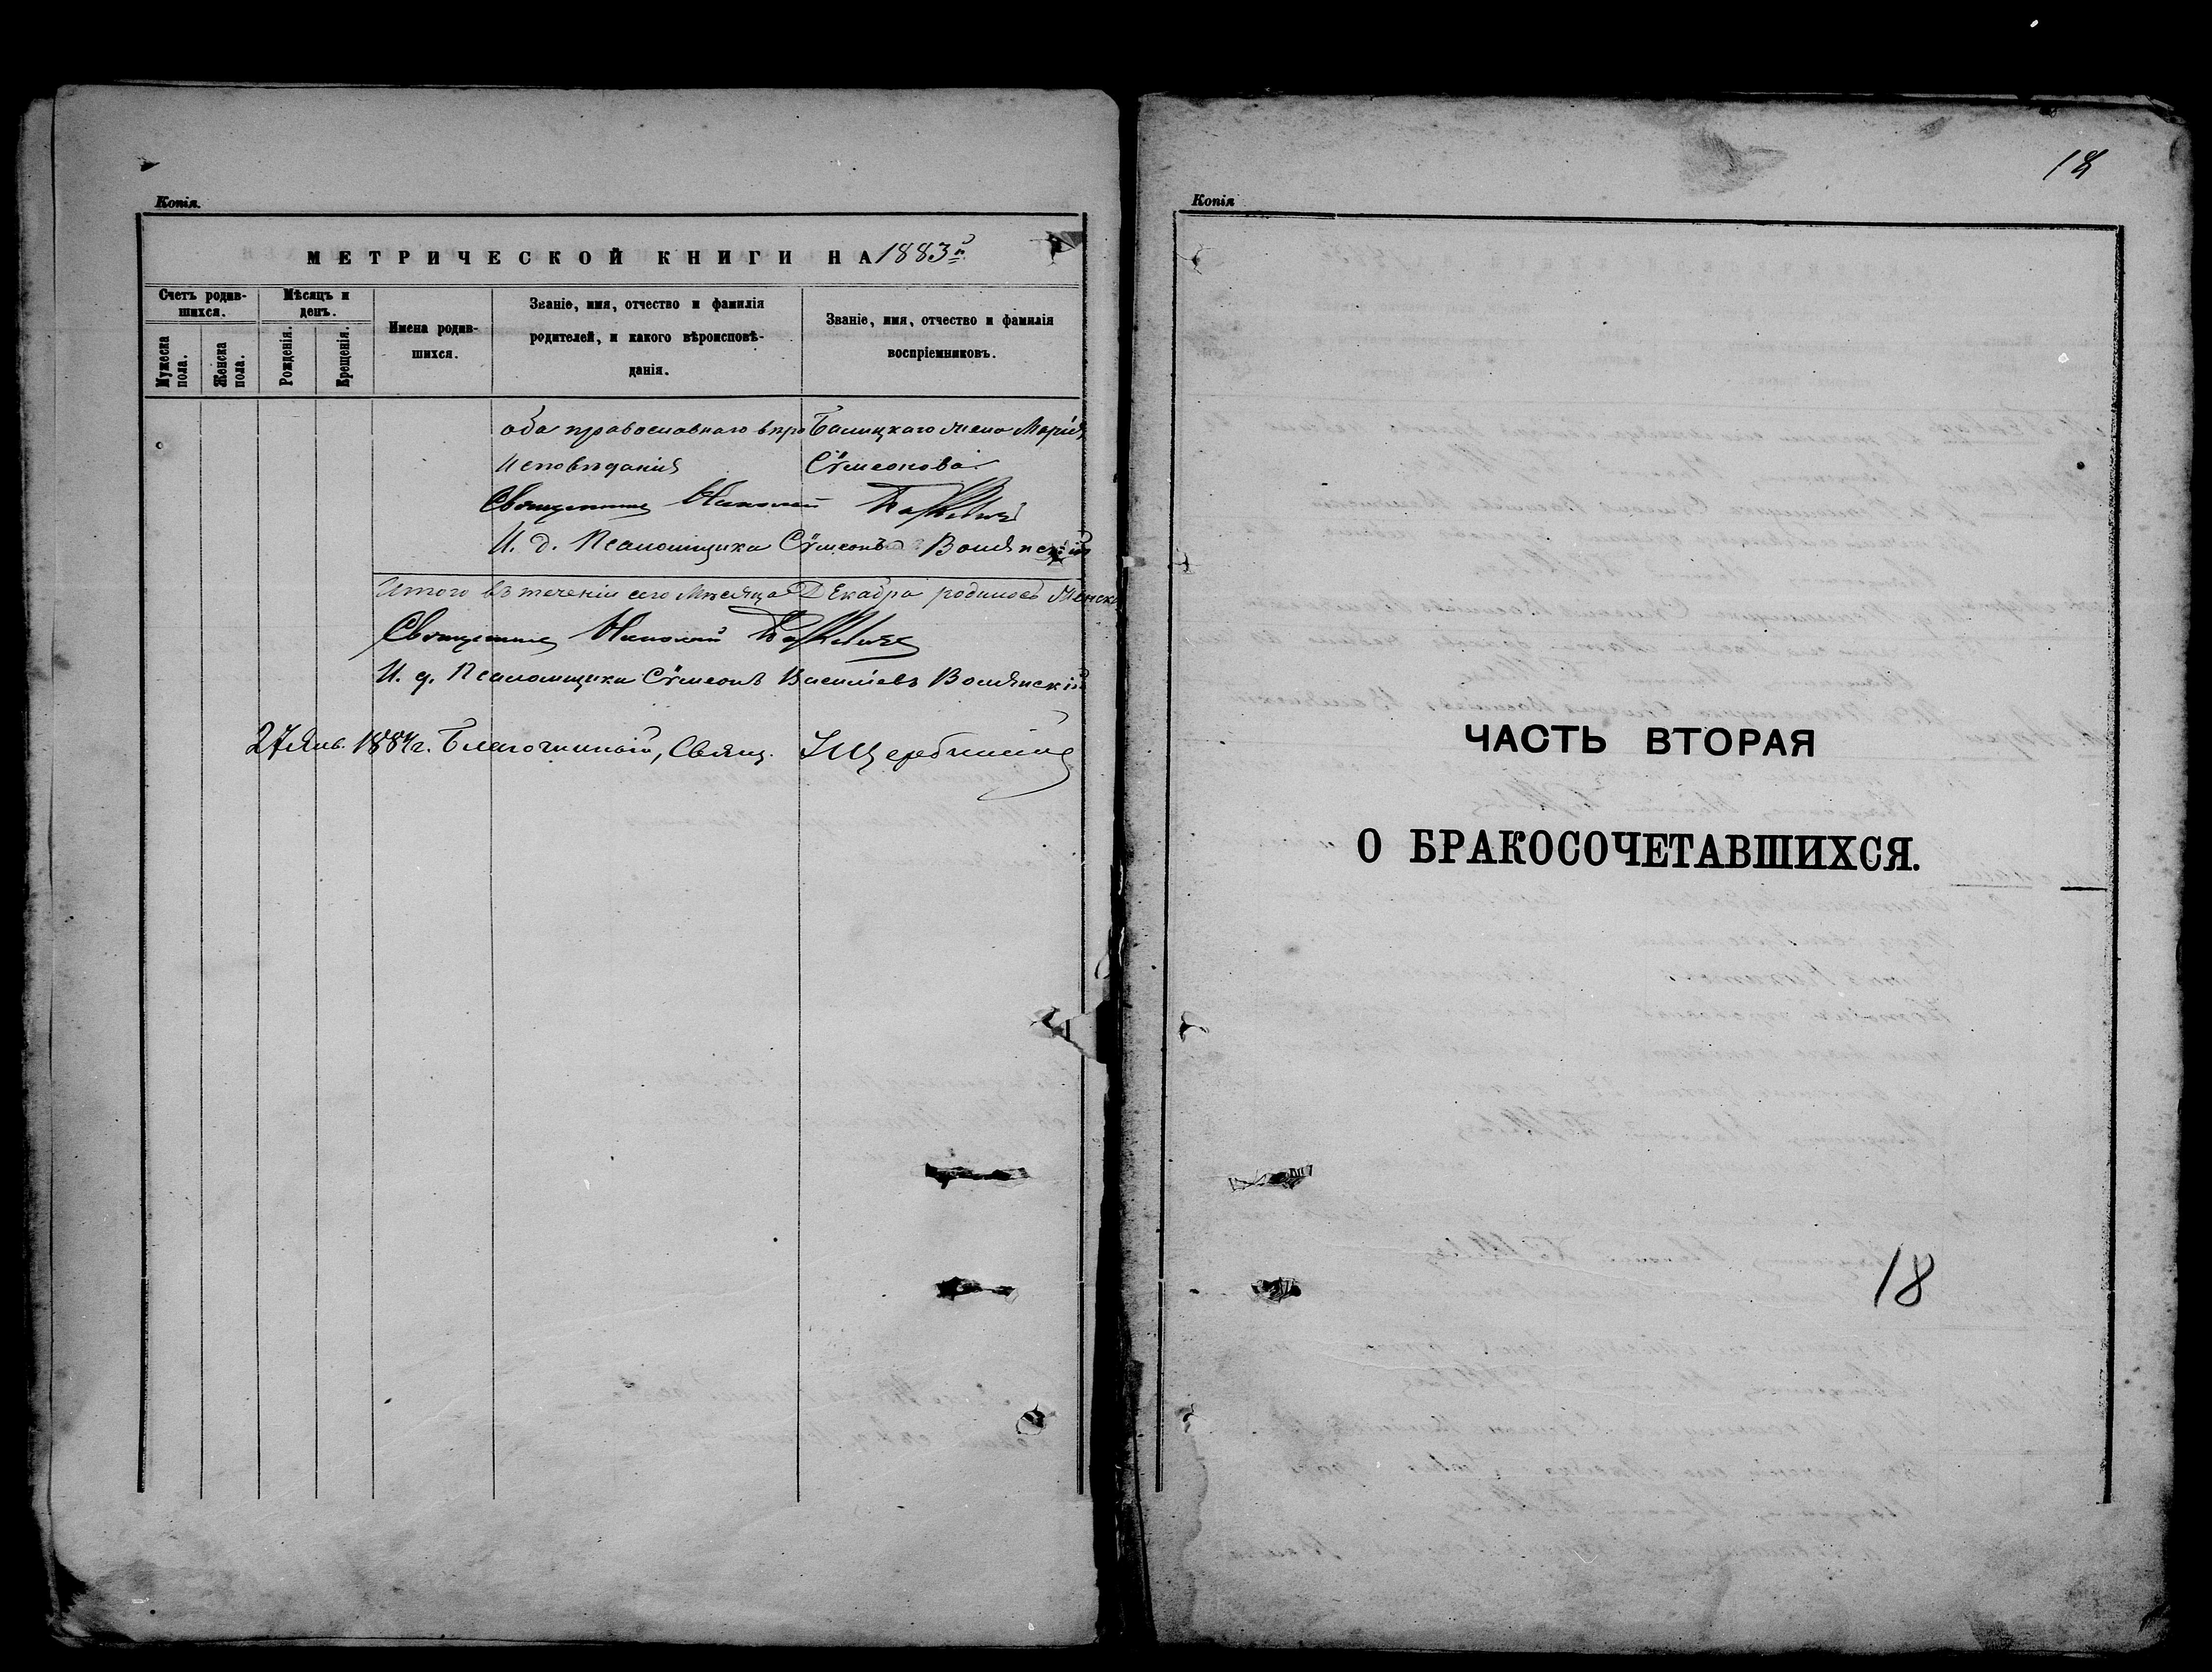 Копія.
МЕТРИЧЕСКОЙ КНИГИ НА 1883й
Счетъ родив-
шихся.
Мѣсяцъ и
день.
Мужеска
пола.
Женска
пола.
Рожденія.
Крещенія.
Имена родив-
шихся.
Званіе, имя, отчество и фамилія
родителей, и какого вѣроисповѣ-
данія.
Званіе, имя, отчество и фамилія
воспріемниковъ.
оба православнаго вѣро Балицкаго жена Марія
исповѣданія Сѵмеонова
Священникъ Николай
И. д. Псаломщика Сѵмеонъ Волянскій
Итого въ теченіи сего Мѣсяца Декабра родилось Женска
Священникъ Николай
И. д. Псаломщика Сѵмеонъ Васильевъ Волянскій
27 Янв. 1884 г. Благочинный, Священ.
Копія
18
ЧАСТЬ ВТОРАЯ
О БРАКОСОЧЕТАВШИХСЯ.
18